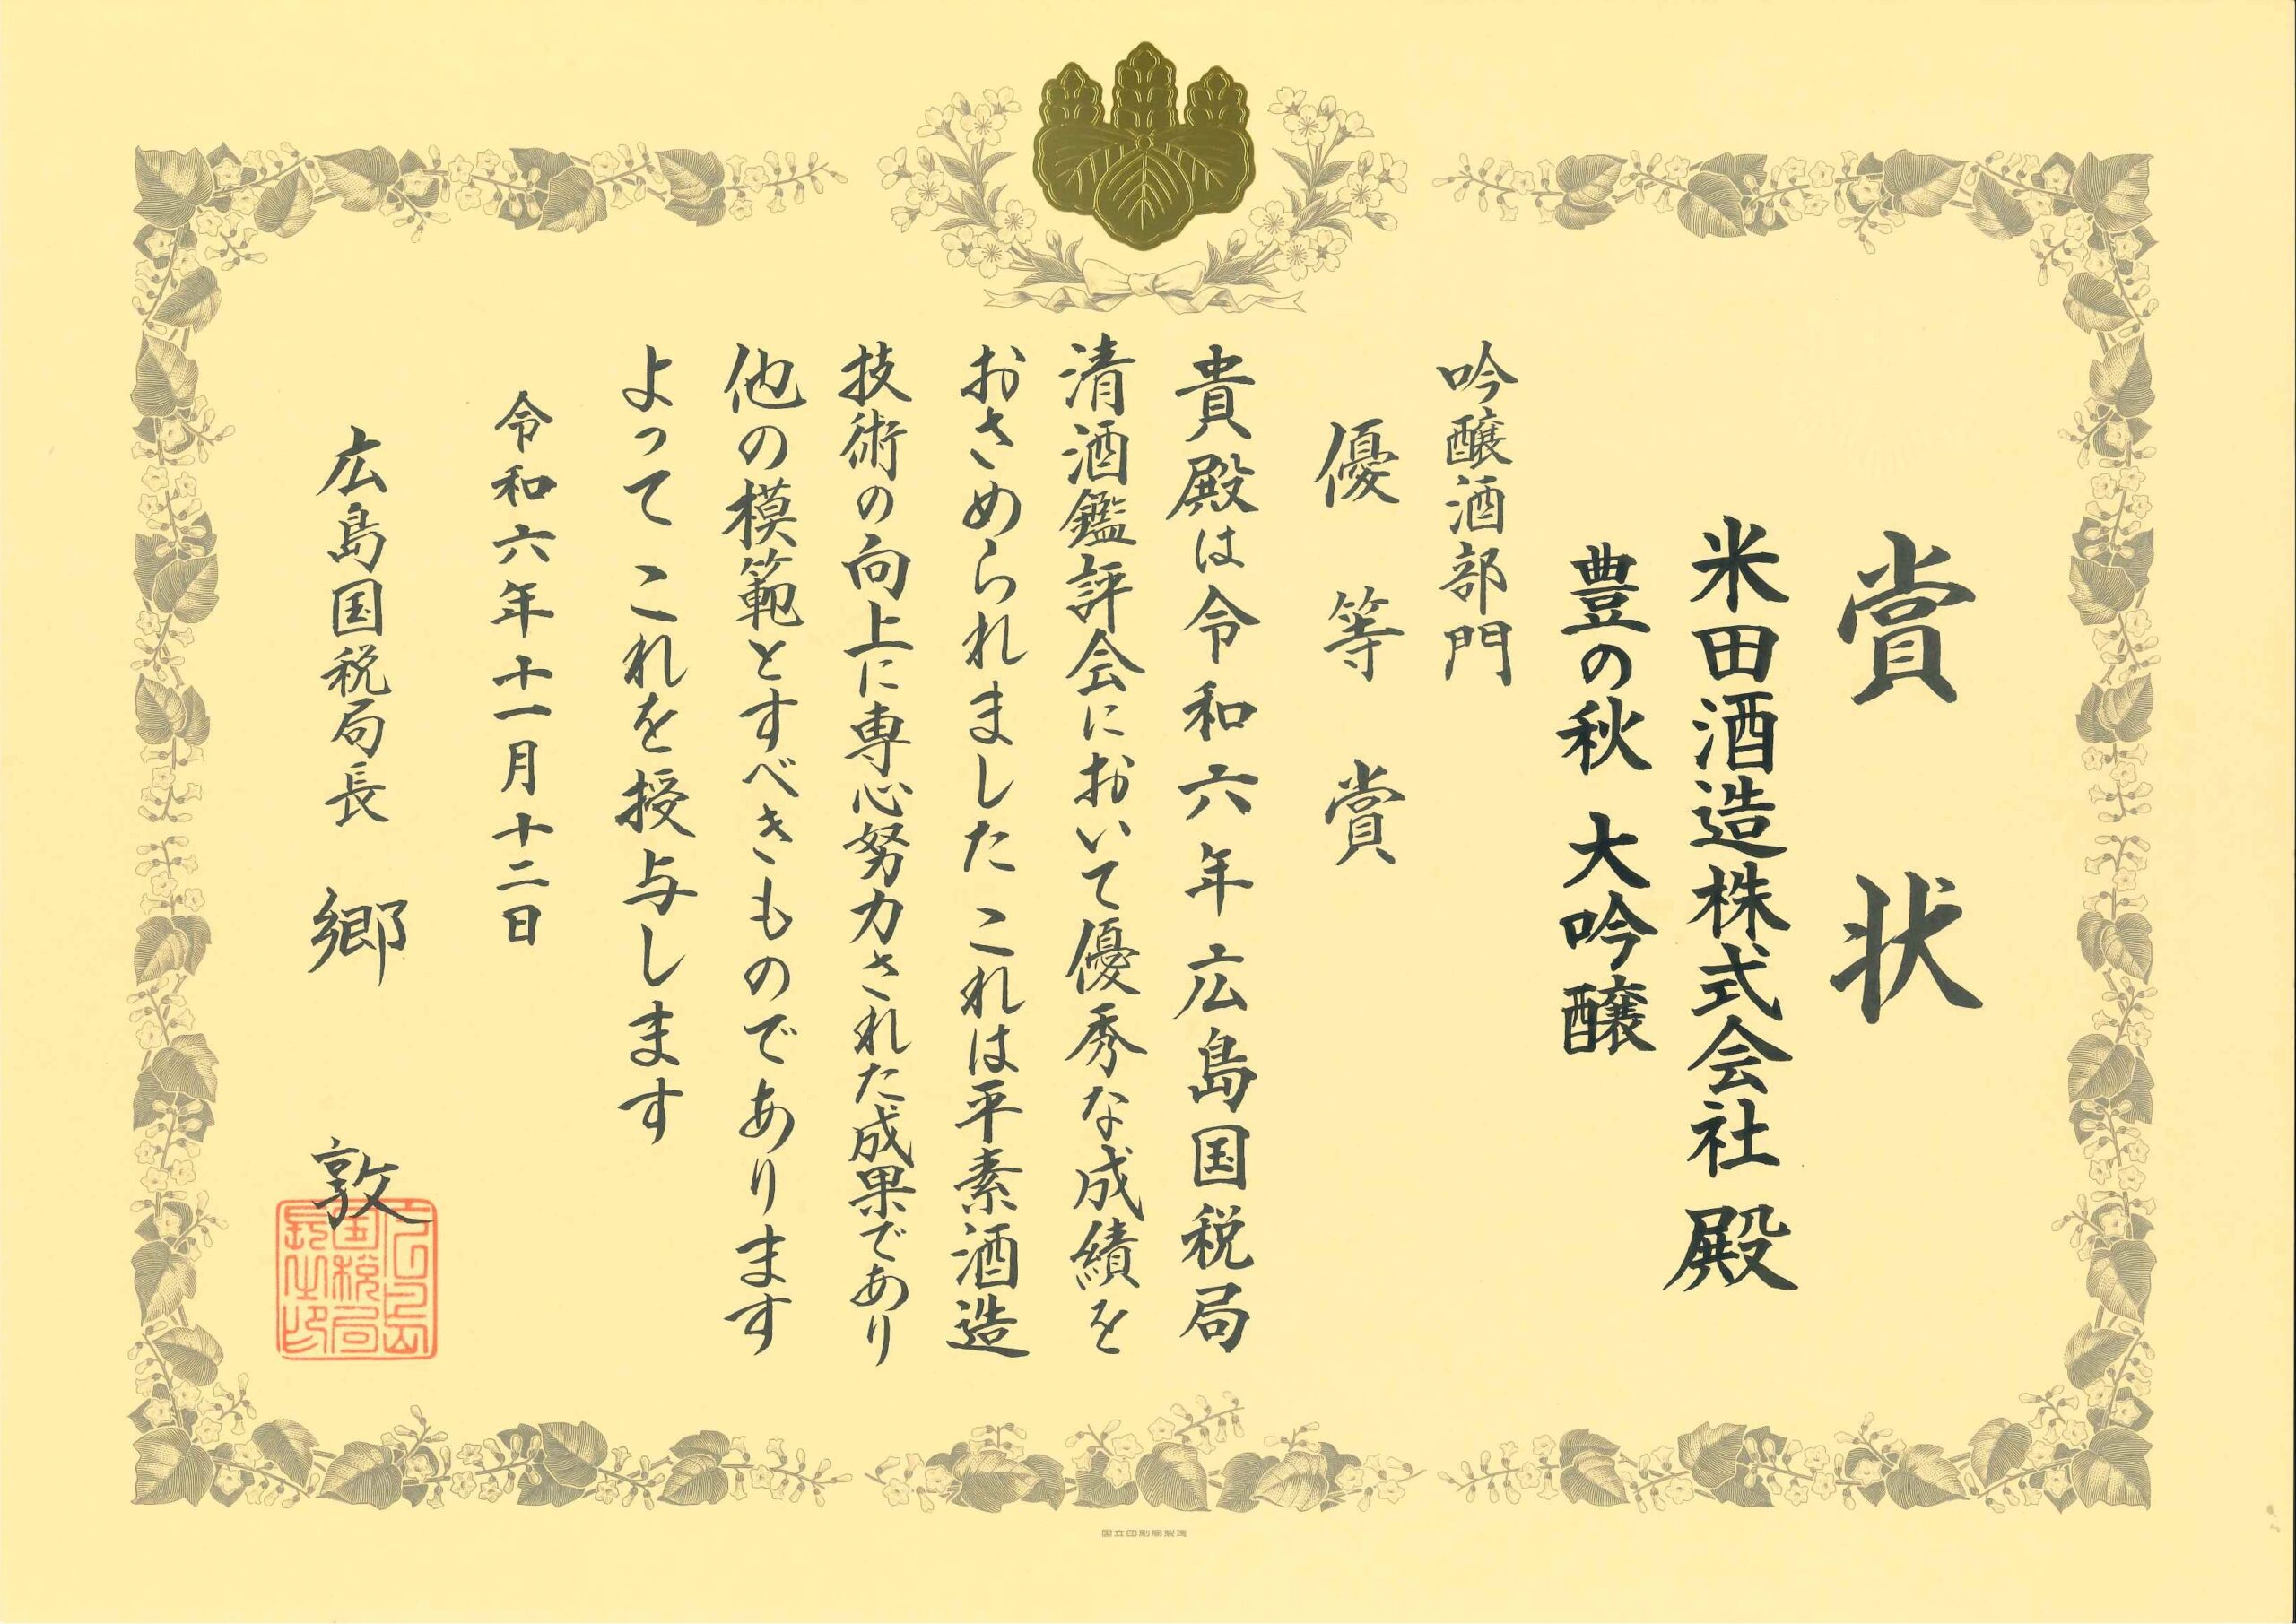 賞状
米田酒造株式会社 殿
豊の秋 大吟醸
吟醸酒部門
優等賞
貴殿は令和六年広島国税局
清酒鑑評会において優秀な成績を
おさめられました これは平素酒造
技術の向上に専心努力された成果であり
他の模範とすべきものであります
よって これを授与します
令和六年十一月十二日
広島国税局長 郷 敦
広島国税局長之印
国立印刷局製造